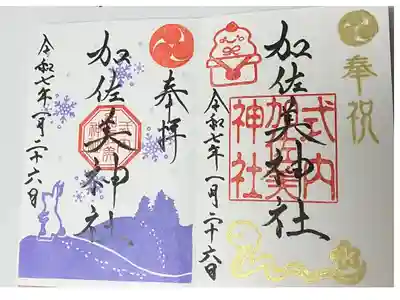 奉祝
加佐美神社
式内
神社
令和七年一月二十六日
奉拝
加佐美神社
令和七年一月二十六日